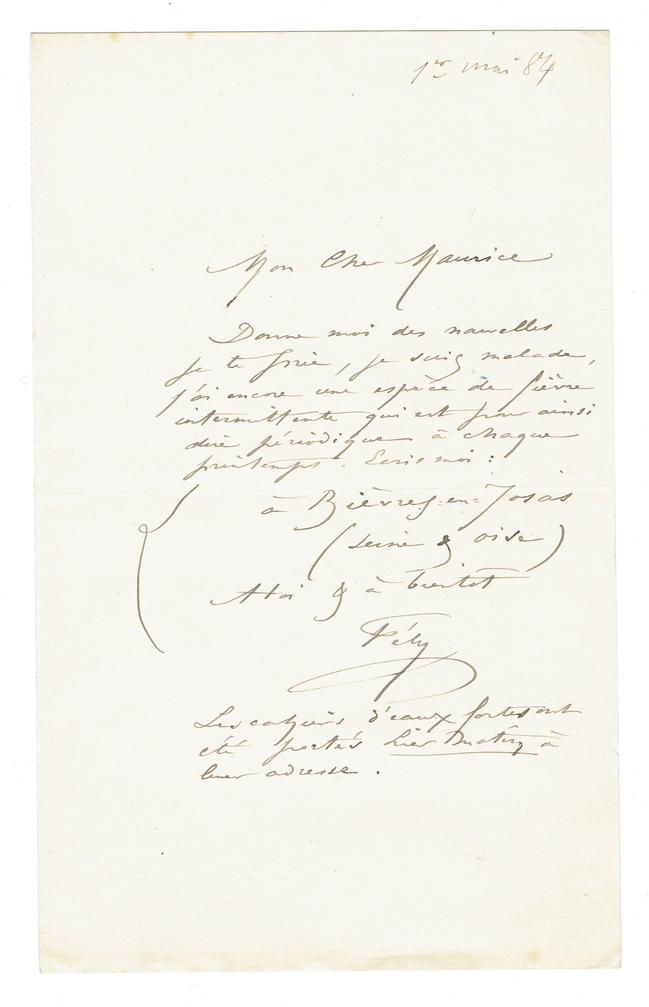 1er mai 84
Mon Cher Maurice
Donne moi des nouvelles
je te prie, je suis malade,
j'ai encore une espèce de fièvre
intermittente qui est pour ainsi
dire périodique à chaque
printemps. Ecris moi :
à Bièvres-en-Josas
(seine & oise)
A toi & à bientôt
Fély
Les cahiers d'eaux fortes ont
été portés hier matin à
leur adresse.